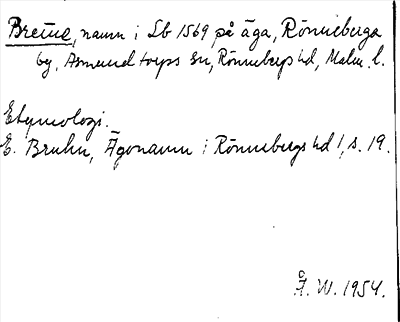 Breüne, namn i Lb 1569 på äga, Rönneberga
by, Asmundtorps sn, Rönnebergs hd, Malm. l.
Etymologi.
E. Bruhn, Ägonamn i Rönnebergs hd 1, s. 19.
Å. W. 1954.